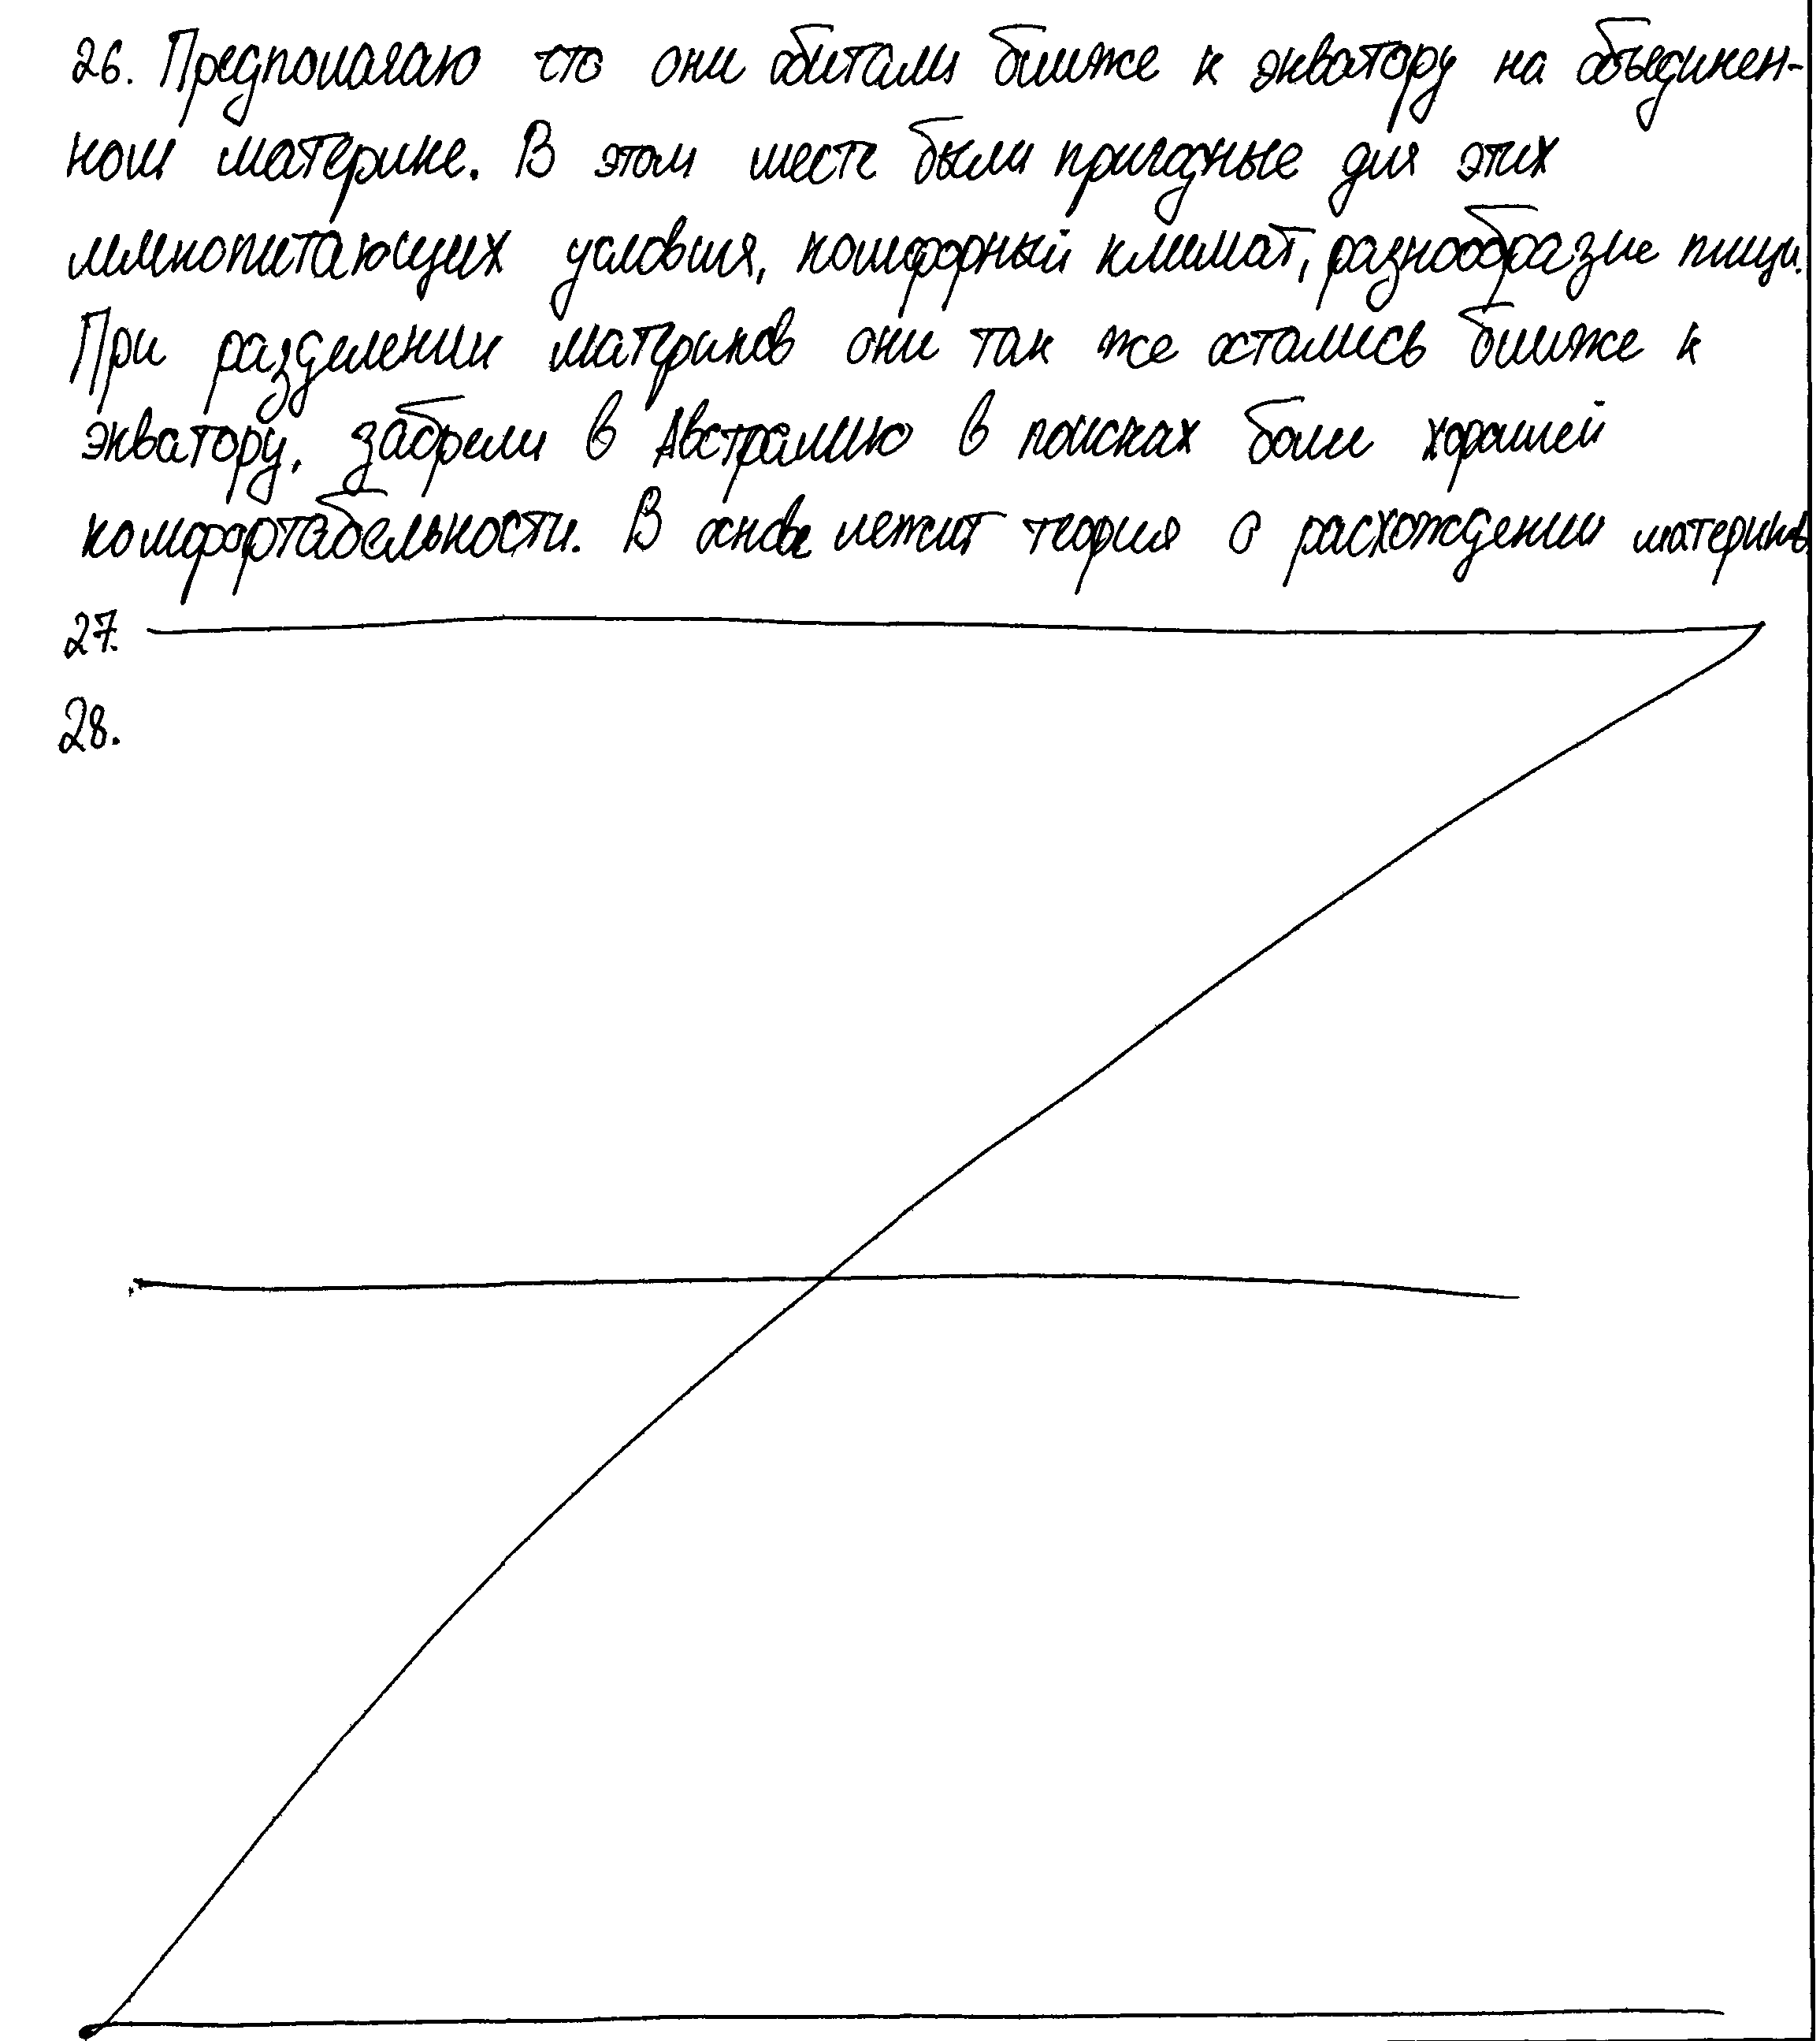 26. Предполагаю что они обитали ближе к экватору на объединен-
ном материке. В этом месте были пригодные для этих
млекопитающих условия, комфорный климат, разнообразие пищи.
При разделении материков они так же остались ближе к
экватору, забрели в Австралию в поисках более хорошей
комфортабельности. В основе лежит теория о расхождении материков.
27.
28.